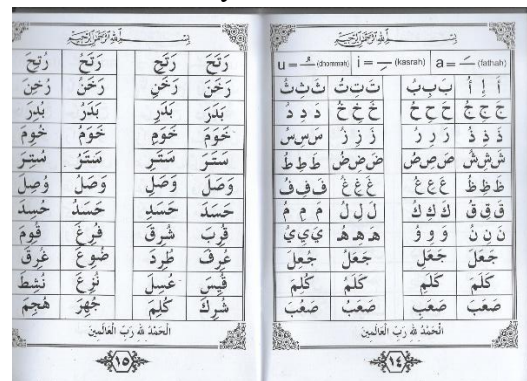 بِسْمِ اللهِ الرَّحْمٰنِ الرَّحِيْمِ
u = ـُ (dhommah) i = ـِ (kasrah) a = ـَ (fathah)
أَ إِ أُ بَ بِ بُ تَ تِ تُ ثَ ثِ ثُ
جَ جِ جُ حَ حِ حُ خَ خِ خُ دَ دِ دُ
ذَ ذِ ذُ رَ رِ رُ زَ زِ زُ سَ سِ سُ
شَ شِ شُ صَ صِ صُ ضَ ضِ ضُ طَ طِ طُ
ظَ ظِ ظُ عَ عِ عُ غَ غِ غُ فَ فِ فُ
قَ قِ قُ كَ كِ كُ لَ لِ لُ مَ مِ مُ
نَ نِ نُ وَ وِ وُ هَ هِ هُ يَ يِ يُ
جَعَلَ جَعَلِ جَعَلُ جُعِلَ
كَلَمَ كَلَمِ كَلَمُ كُلِمَ
صَعَبَ صَعَبِ صَعَبُ صُعِبَ
اَلْحَمْدُ لِلّٰهِ رَبِّ الْعَالَمِيْنَ
١٤
بِسْمِ اللهِ الرَّحْمٰنِ الرَّحِيْمِ
رَتَحَ رَتَحِ رَتَحُ رُتِحَ
رَخَنَ رَخَنِ رَخَنُ رُخِنَ
بَدَرَ بَدَرِ بَدَرُ بُدِرَ
خَوَمَ خَوَمِ خَوَمُ خُوِمَ
سَتَرَ سَتَرِ سَتَرُ سُتِرَ
وَصَلَ وَصَلِ وَصَلُ وُصِلَ
حَسَدَ حَسَدِ حَسَدُ حُسِدَ
قُرِبَ شُرِقَ فُرِغَ قُوِمَ
عُرِفَ طُرِدَ ضُوِعَ غُرِقَ
قُبِسَ عُسِلَ نُزِعَ نُشِطَ
شُرِكَ كُلِمَ جُهِرَ هُجِمَ
اَلْحَمْدُ لِلّٰهِ رَبِّ الْعَالَمِيْنَ
١٥